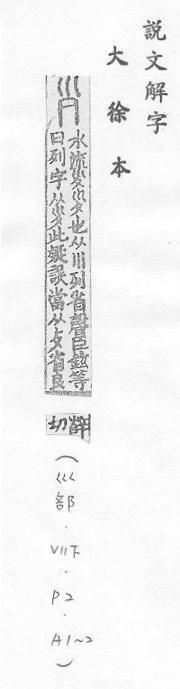 說文解字
大徐本
水流𡿪𡿪也从川列省聲臣鉉等
曰列字从𡿪此疑誤當从歺省良
辥切
(巛部．VII下．P2．A1~2)